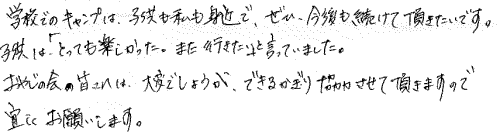 学校でのキャンプは、子供も私も身近で、ぜひ、今後も続けて頂きたいです。
子供は、「とっても楽しかった。また行きたい」と言っていました。
おやじの会の皆さんは、大変でしょうが、できるかぎり協力させて頂きますので
宜しくお願いします。